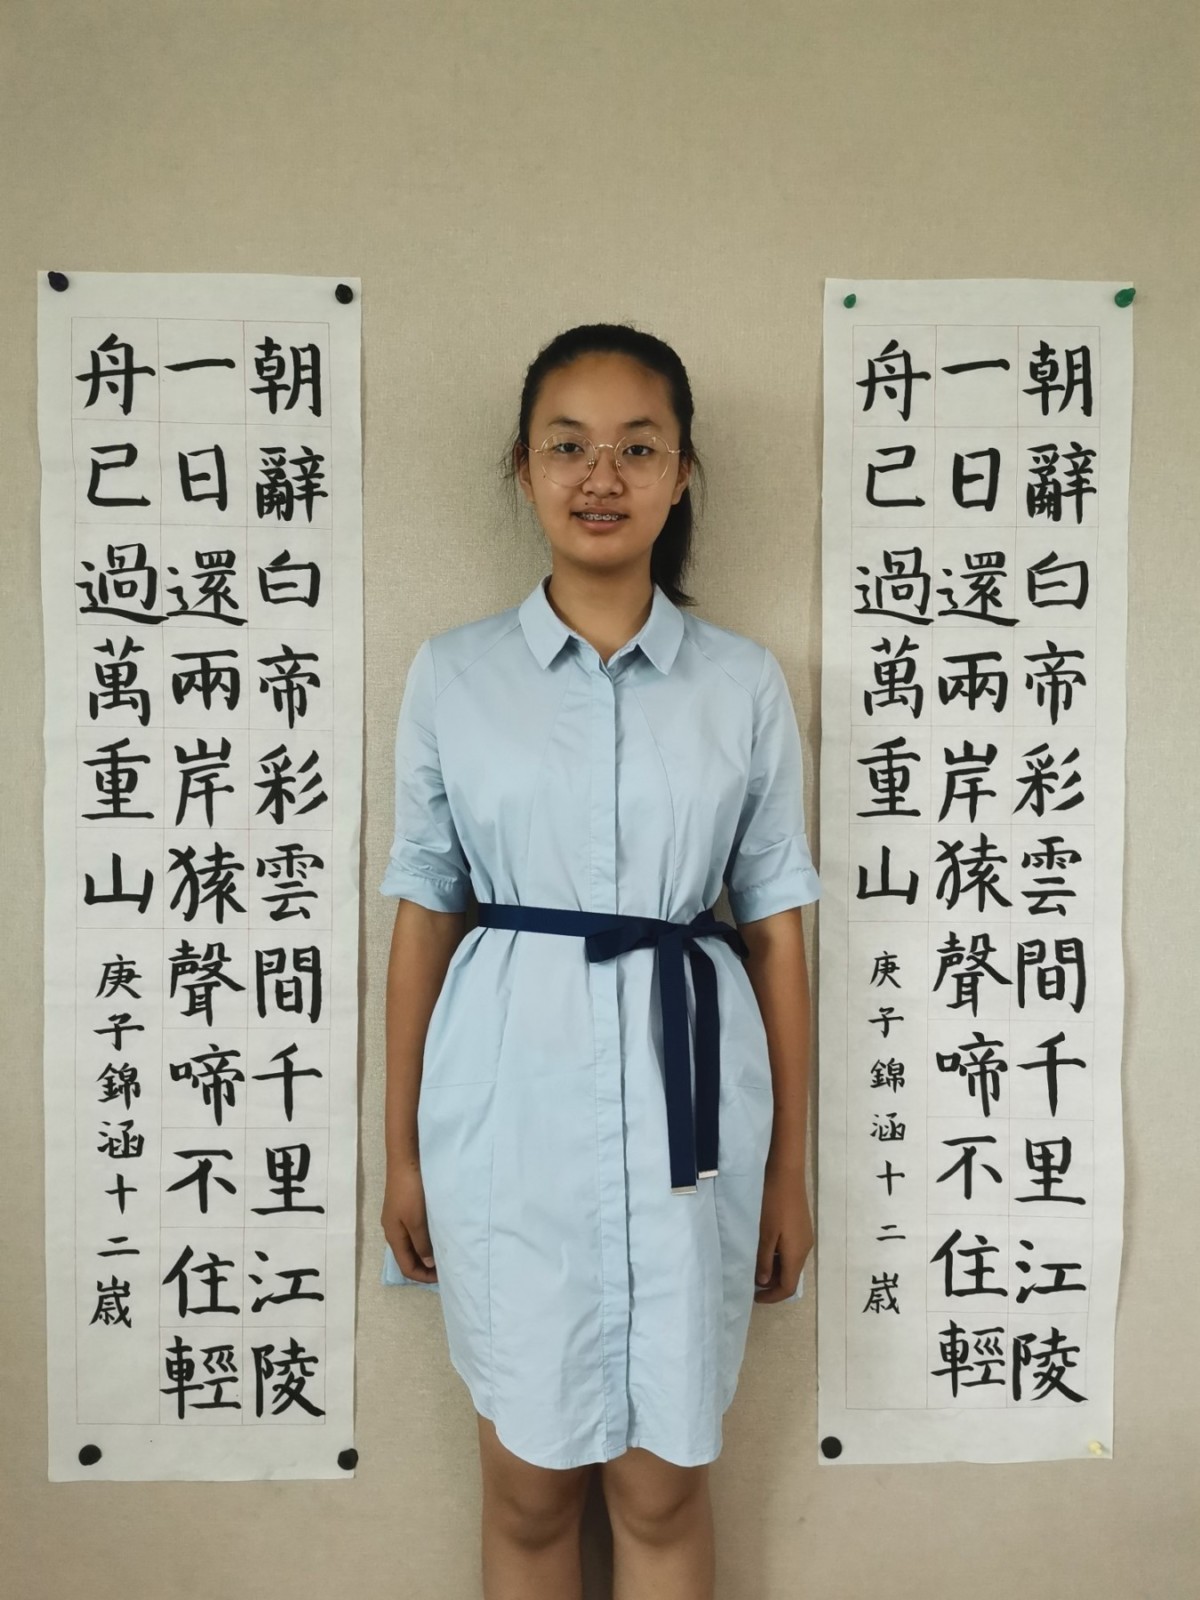 朝辭白帝彩雲間千里江陵
一日還兩岸猿聲啼不住輕
舟已過萬重山
庚子錦涵十二歲
朝辭白帝彩雲間千里江陵
一日還兩岸猿聲啼不住輕
舟已過萬重山
庚子錦涵十二歲